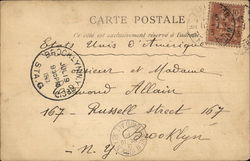 CARTE POSTALE
Ce côté est exclusivement réservé à l'adresse
Etats Unis d'Amérique
BROOKLYN, N.Y.
STA.
Monsieur et Madame
Allain
167 - Russell street 167
Brooklyn
- N. Y.